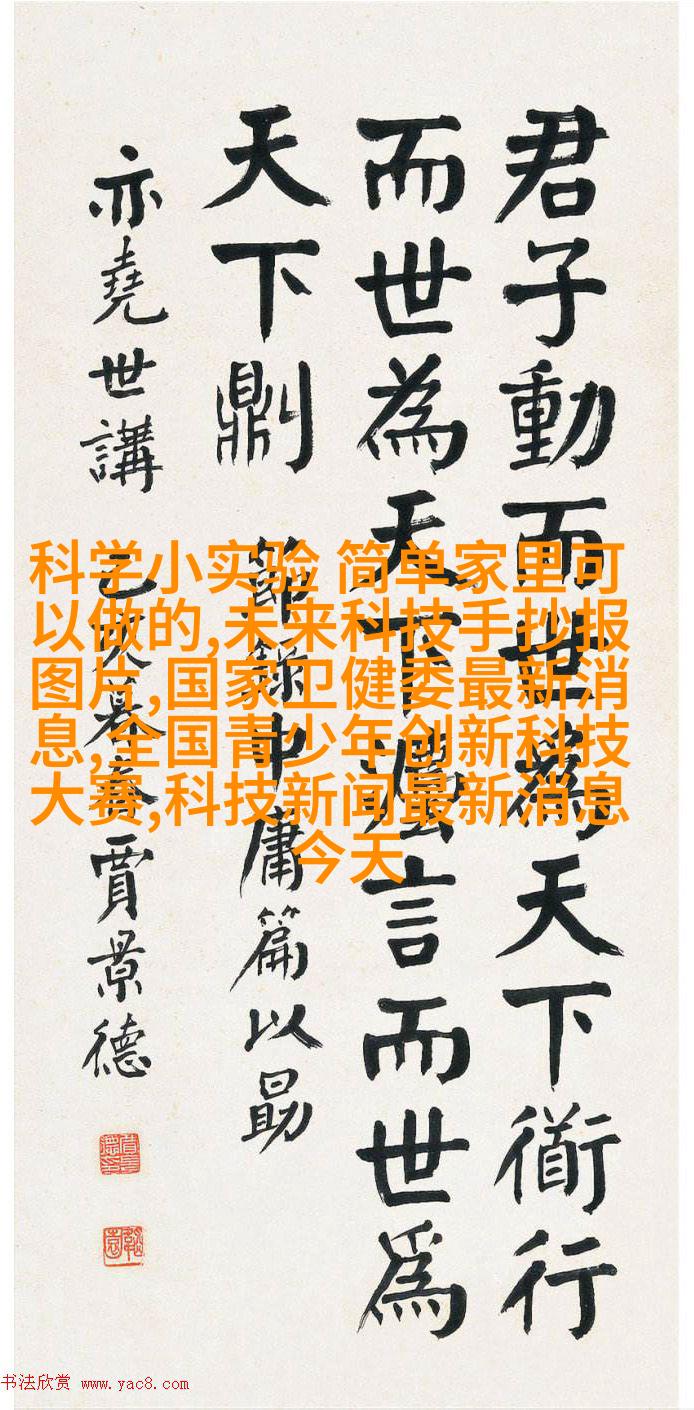 君子動而世為天下衜行
而世為天下灋言而世為
天下𠟭
節錄中庸篇以勗
亦堯世講
己亥暮春賈景德
科学小实验 简单家里可
以做的,未来科技手抄报
图片,国家卫健委最新消
息,全国青少年创新科技
大赛,科技新闻最新消息
今天
书法欣赏 www.yac8.com